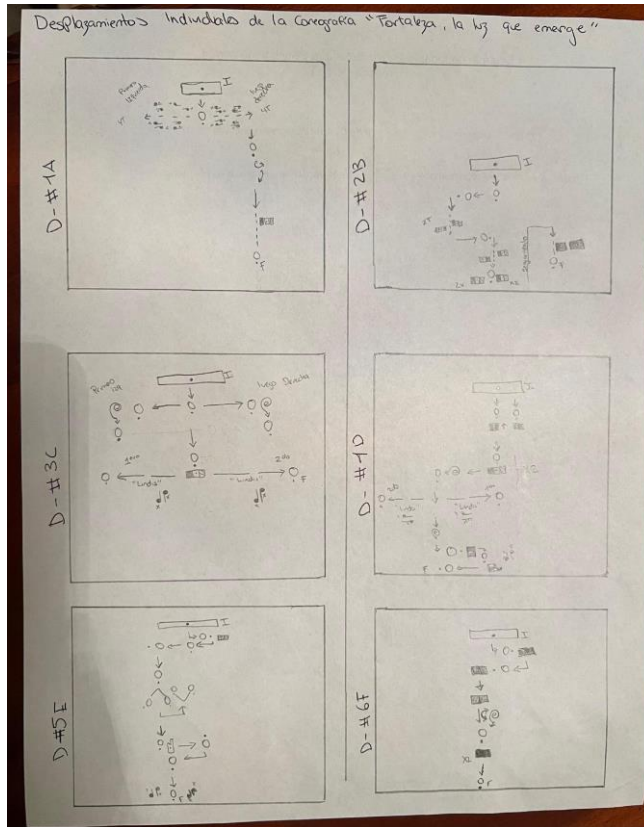 Desplazamientos Individuales de la Coreografía "Fortaleza, la luz que emerge"
D-#1A
I
Primero
izquierda
luego
derecha
4T
4T
F
D-#2B
I
2x
2x
F
D-#3C
I
Primero
izq
luego Derecha
1ero
"Lindy"
"Lindy"
2do
F
D-#1D
I
"Lindy"
F
D#5E
I
F
D-#6F
I
F